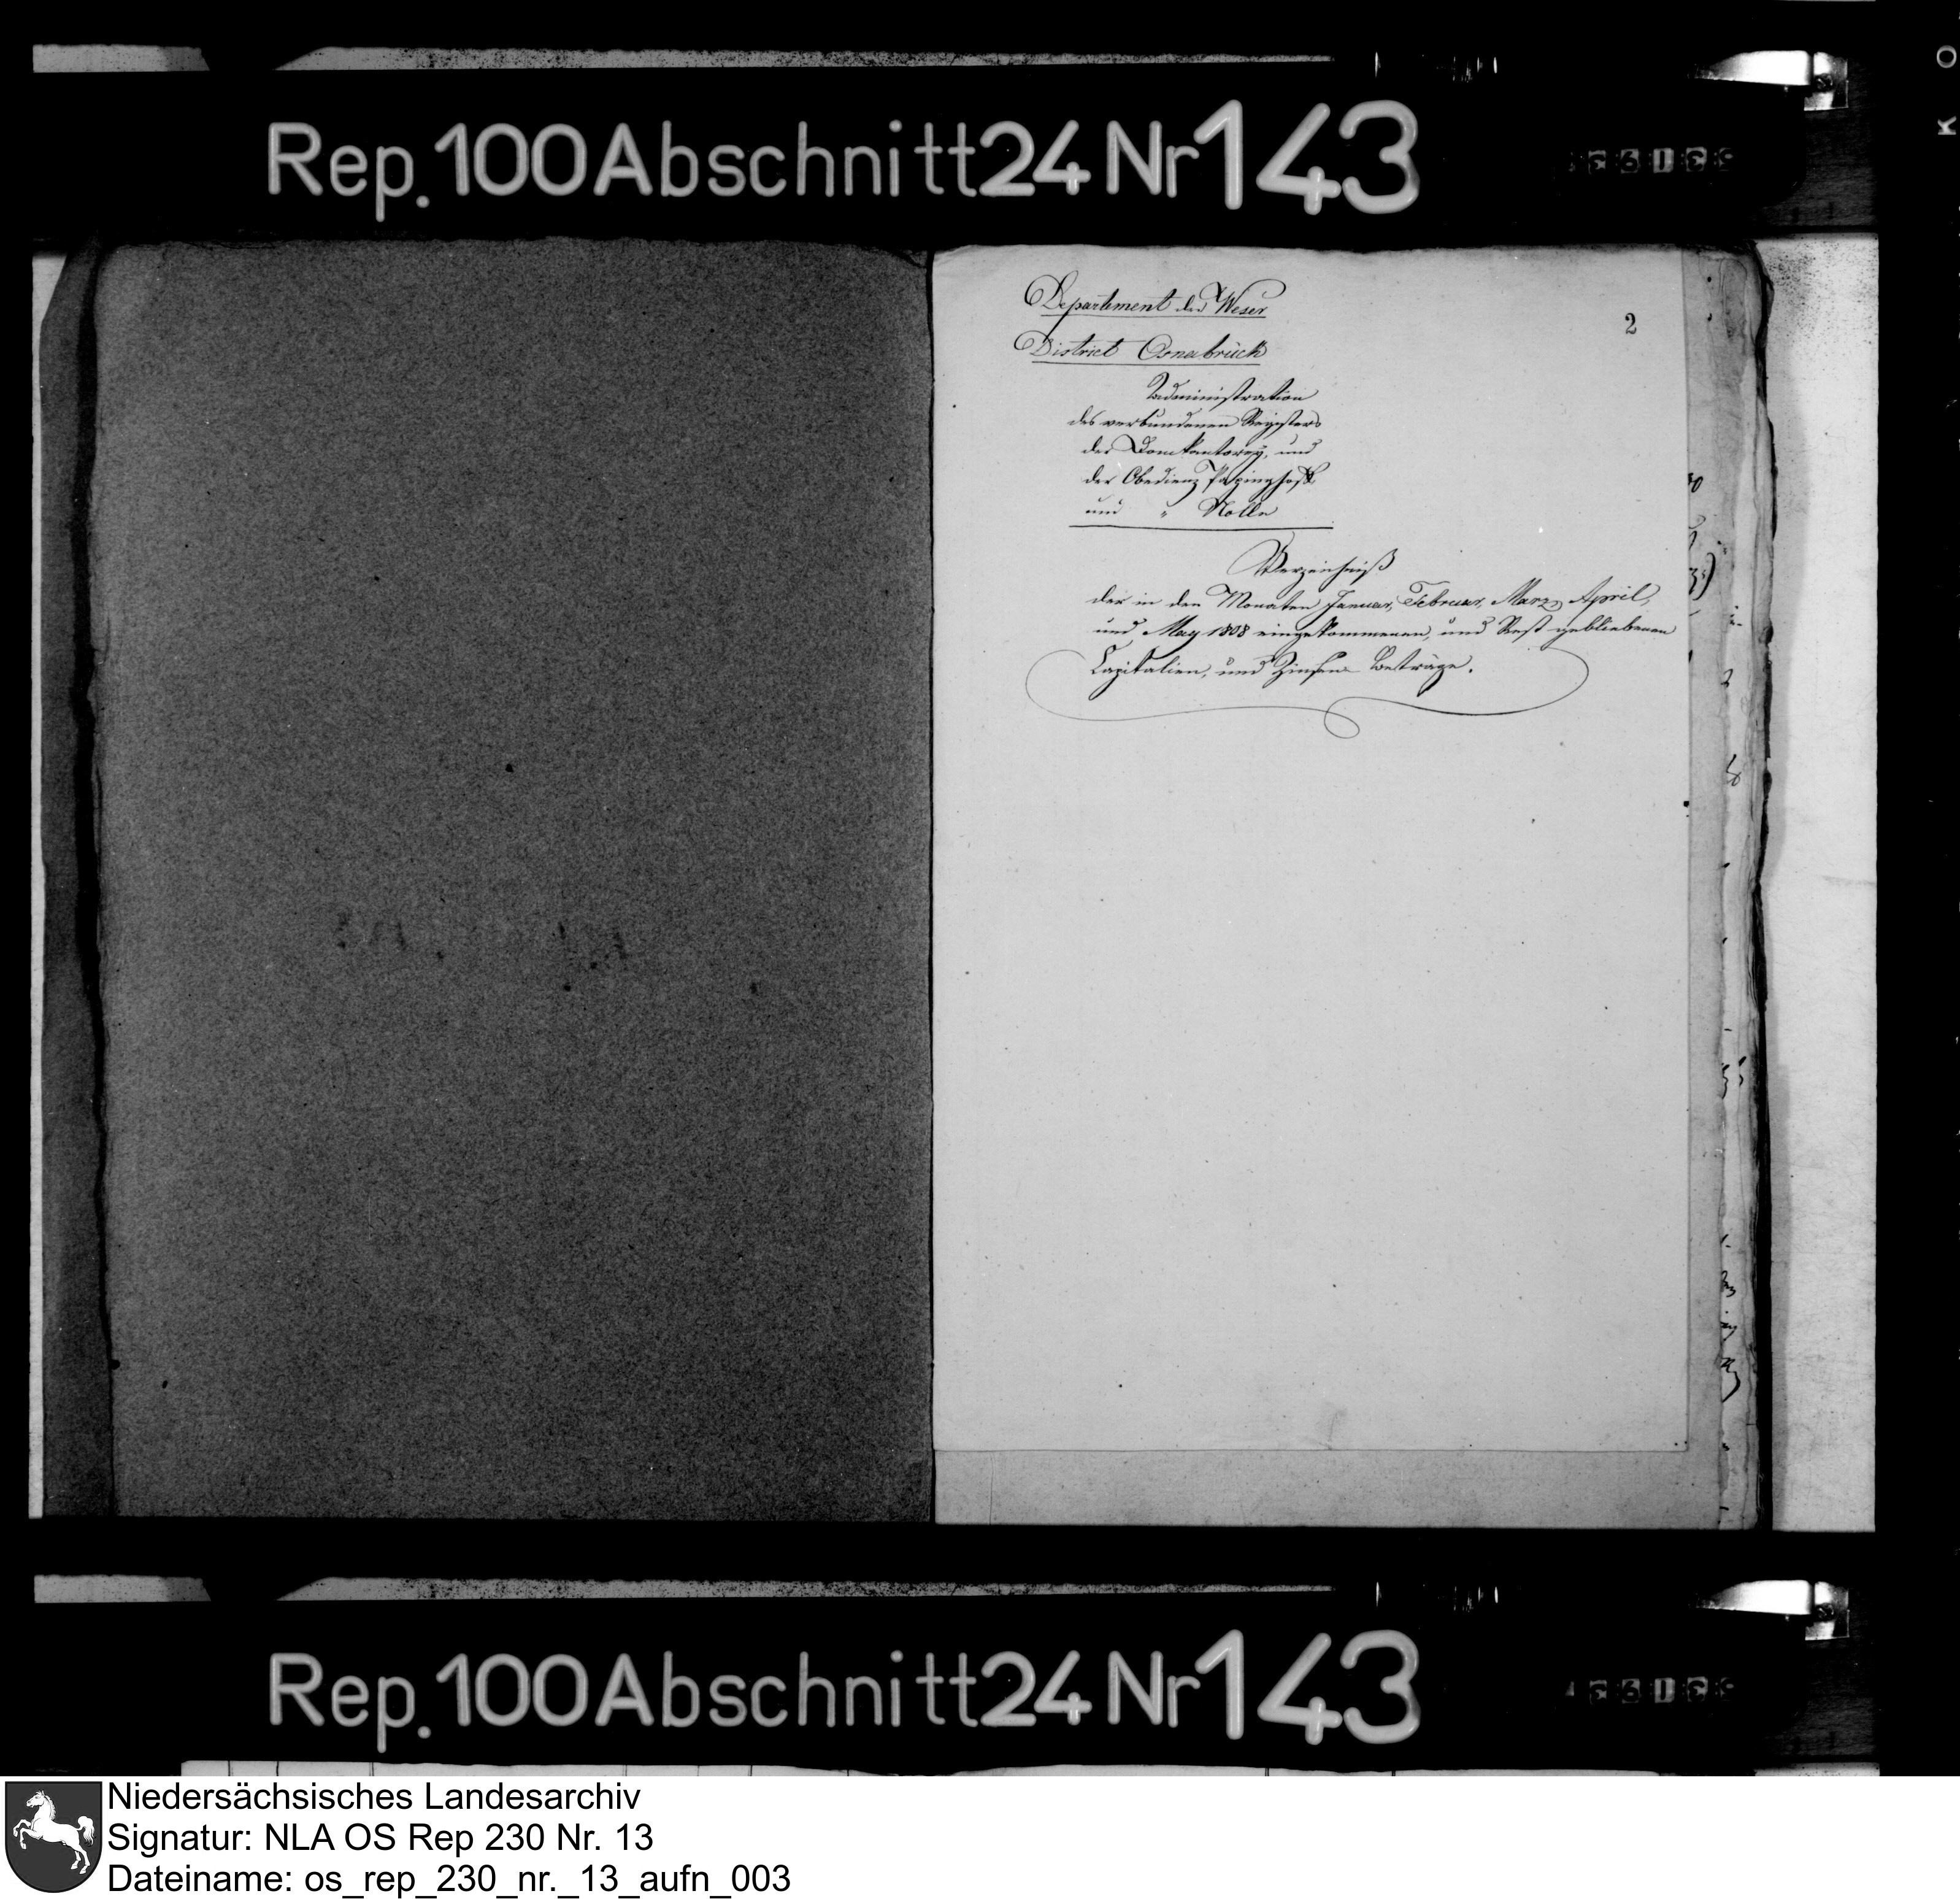 Rep. 100 Abschnitt 24 Nr 143
Departement der Weser
2
District Osnabrück
Administration
des verbundenen Registers
der Domkantorey, und
der Obedienz
und " Nolle
Verzeichniß
der in den Monaten Januar, Februar, Marz, April,
und May 1808 eingekommenen, und Rest gebliebenen
Capitalien, und Zinsen Beträge.
Rep. 100 Abschnitt 24 Nr 143
Niedersächsisches Landesarchiv
Signatur: NLA OS Rep 230 Nr. 13
Dateiname: os_rep_230_nr._13_aufn_003